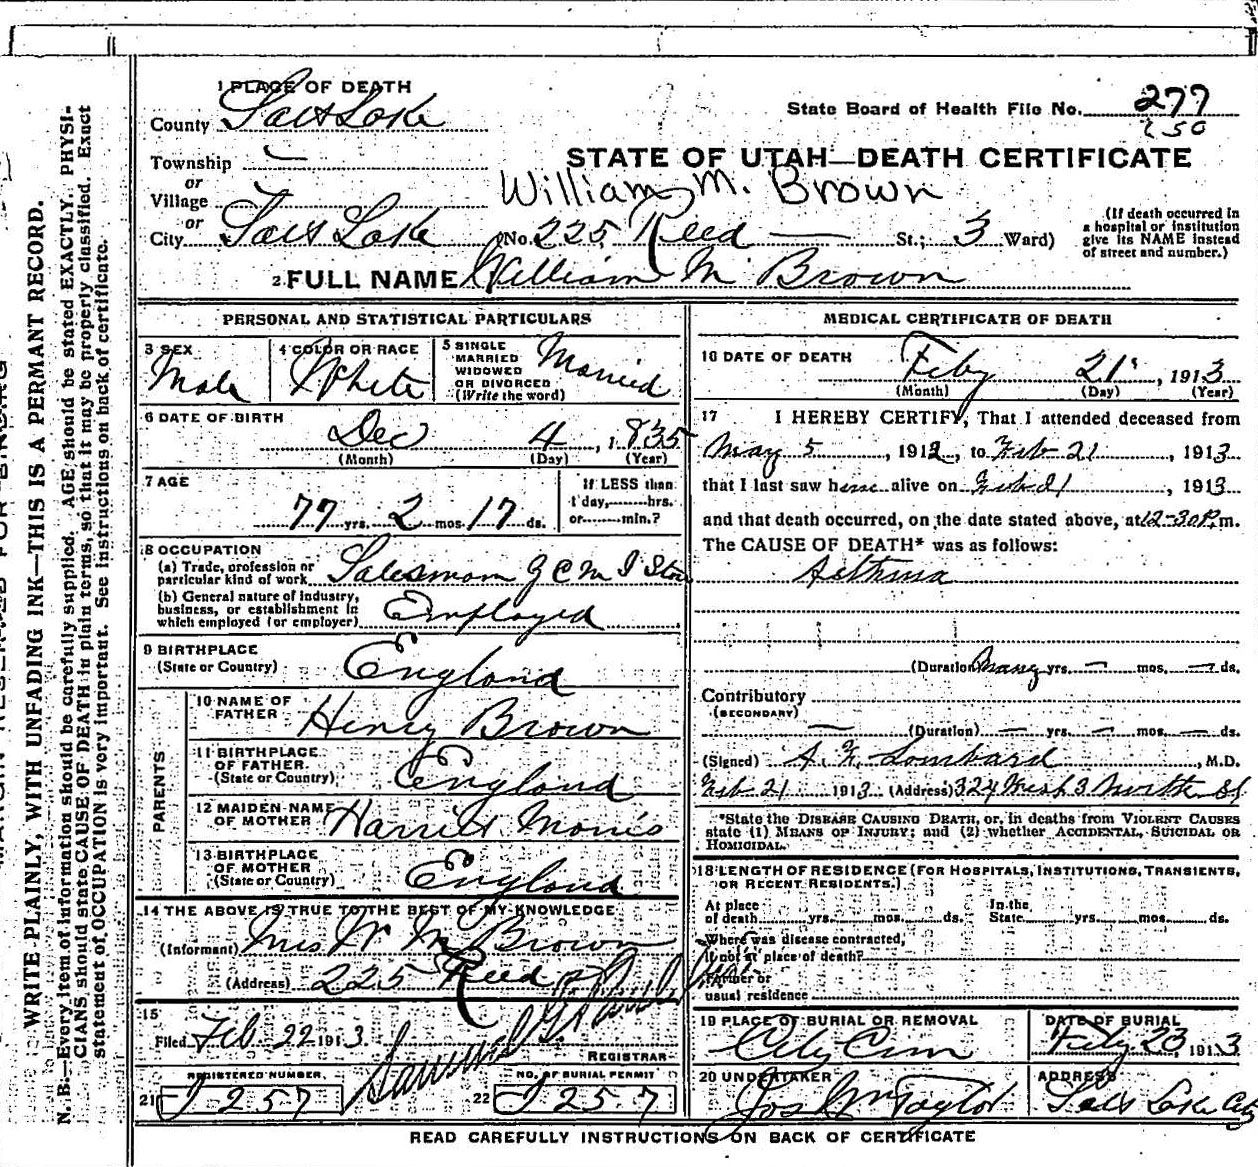 1 PLACE OF DEATH
County Salt Lake
State Board of Health File No. 277
250
Township
or
Village
or
STATE OF UTAH—DEATH CERTIFICATE
William M. Brown
City Salt Lake (No. 225 Reed — St.; 3 Ward)
(If death occurred in
a hospital or institution
give its NAME instead
of street and number.)
2 FULL NAME William M Brown
PERSONAL AND STATISTICAL PARTICULARS
3 SEX
Male
4 COLOR OR RACE
White
5 SINGLE
MARRIED
WIDOWED
OR DIVORCED
(Write the word)
Married
6 DATE OF BIRTH
Dec 4, 1835
(Month) (Day) (Year)
7 AGE
77 yrs. 2 mos. 17 ds.
If LESS than
1 day, hrs.
or min.?
8 OCCUPATION
(a) Trade, profession or
particular kind of work Salesman Z C M I Store
(b) General nature of industry,
business, or establishment in
which employed (or employer) Employed
9 BIRTHPLACE
(State or Country) England
PARENTS
10 NAME OF
FATHER Henry Brown
11 BIRTHPLACE
OF FATHER
(State or Country) England
12 MAIDEN NAME
OF MOTHER Harriet Morris
13 BIRTHPLACE
OF MOTHER
(State or Country) England
14 THE ABOVE IS TRUE TO THE BEST OF MY KNOWLEDGE
(Informant) Mrs W M Brown
(Address) 225 Reed
15
Filed Feb 22 1913
Samuel G. Paul
REGISTRAR
REGISTERED NUMBER
21 J 257
NO. OF BURIAL PERMIT
22 J 257
MEDICAL CERTIFICATE OF DEATH
16 DATE OF DEATH
Feby 21, 1913
(Month) (Day) (Year)
17 I HEREBY CERTIFY, That I attended deceased from
May 5, 1912, to Feb 21, 1913
that I last saw him alive on Feb 21, 1913
and that death occurred, on the date stated above, at 12-30 P. m.
The CAUSE OF DEATH* was as follows:
Asthma
(Duration) Many yrs. — mos. — ds.
Contributory
(SECONDARY)
— (Duration) — yrs. — mos. — ds.
(Signed) A. F. Lombard, M.D.
Feb 21 1913 (Address) 324 West 3 North St
*State the DISEASE CAUSING DEATH, or, in deaths from VIOLENT CAUSES
state (1) MEANS OF INJURY; and (2) whether ACCIDENTAL, SUICIDAL OR
HOMICIDAL.
18 LENGTH OF RESIDENCE (FOR HOSPITALS, INSTITUTIONS, TRANSIENTS,
OR RECENT RESIDENTS.)
At place
of death yrs. mos. ds.
In the
State yrs. mos. ds.
Where was disease contracted,
if not at place of death?
Former or
usual residence
19 PLACE OF BURIAL OR REMOVAL
City Cem
DATE OF BURIAL
Feby 23, 1913
20 UNDERTAKER
Jos Wm Taylor
ADDRESS
Salt Lake City
READ CAREFULLY INSTRUCTIONS ON BACK OF CERTIFICATE
WRITE PLAINLY, WITH UNFADING INK—THIS IS A PERMANT RECORD.
N. B.—Every item of information should be carefully supplied. AGE should be stated EXACTLY. PHYSI-
CIANS should state CAUSE OF DEATH in plain terms, so that it may be properly classified. Exact
statement of OCCUPATION is very important. See instructions on back of certificate.